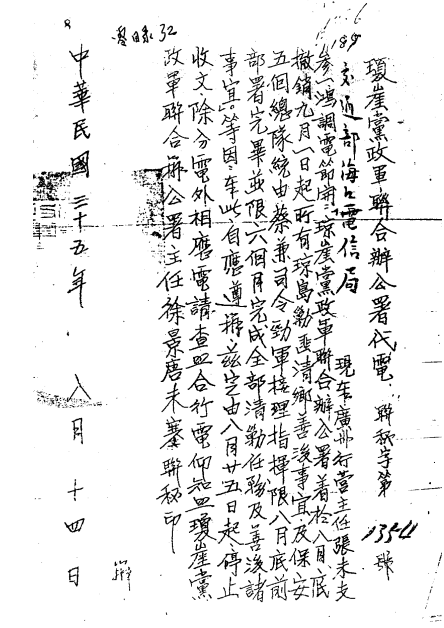 瓊崖黨政軍聯合辦公署代電 聯秘字第1354號
交通部海口電信局
現奉廣州行營主任張未支
參一鴻調電節開瓊崖黨政軍聯合辦公署着於八月底
撤銷九月一日起所有瓊島勦匪清鄉善後事宜及保安
五個總隊統由蔡兼司令勁軍核理指揮限八月底前
部署完畢並限六個月完成全部清勦任務及善後諸
事宜等因奉此自應遵辦茲定由八月廿五日起停止
收文除分電外相應電請查照合行電仰知照瓊崖黨
政軍聯合辦公署主任徐景唐未寒聯秘印
中華民國三十五年八月十四日